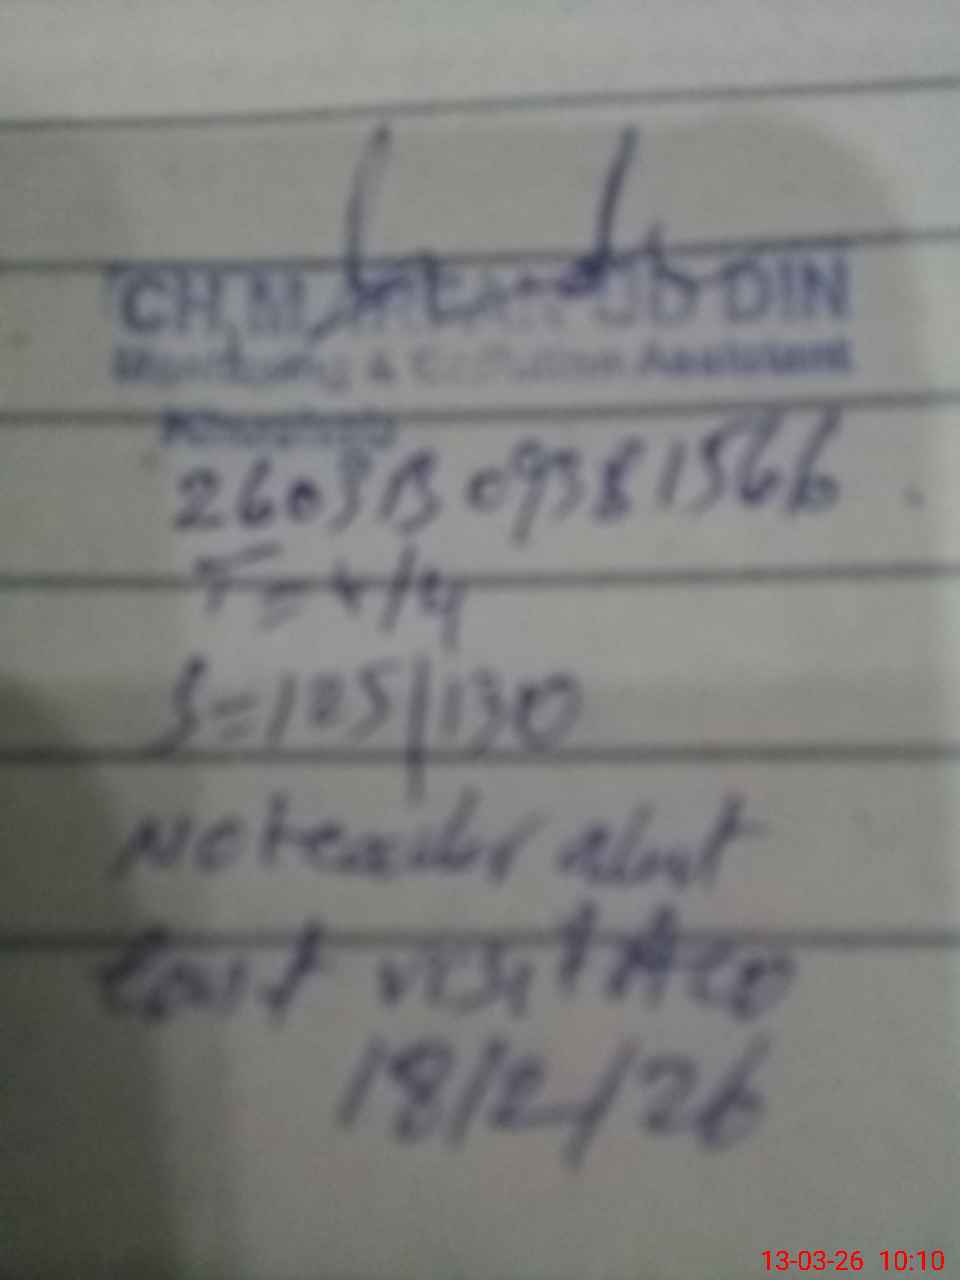 CH. M. UD-DIN
Monitoring & Evaluation Assistant
Khushab
2603B09381566
T=4/4
S=125/130
No teacher absent
Last visit AEO
18/2/26
13-03-26 10:10